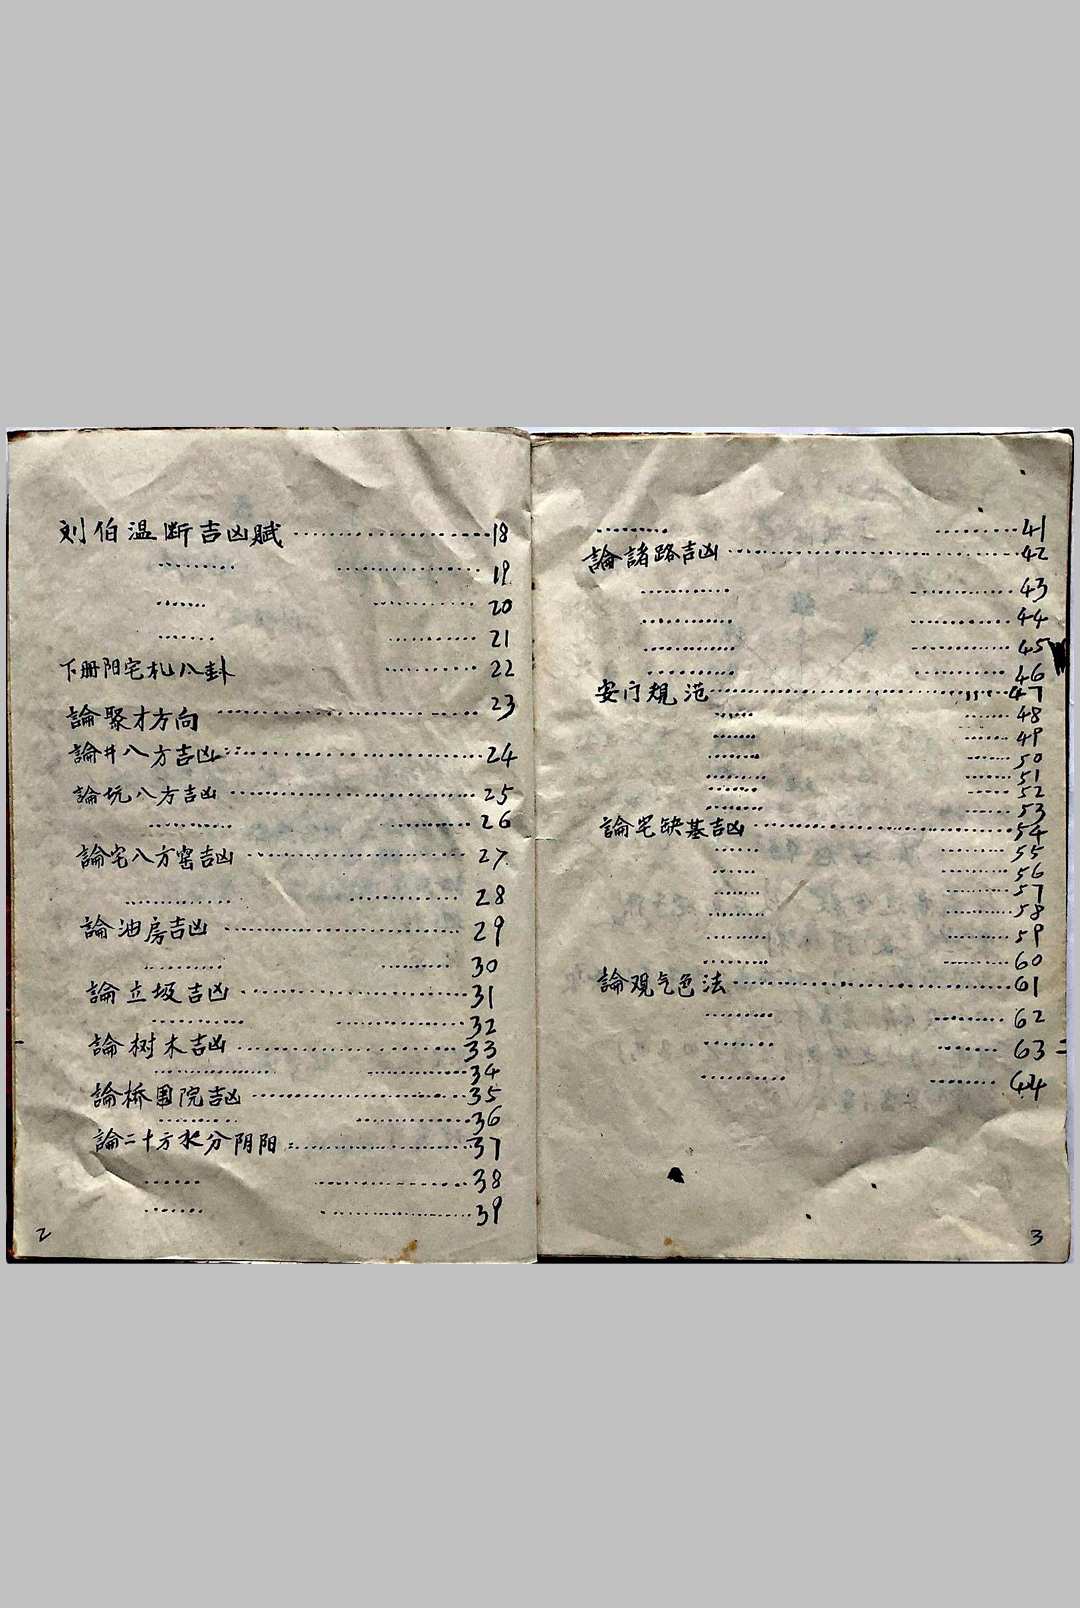 刘伯温断吉凶賦……18
……19
……20
……21
下册阳宅札八卦……22
論聚才方向……23
論井八方吉凶……24
論坑八方吉凶……25
……26
論宅八方窑吉凶……27
……28
論油房吉凶……29
……30
論立圾吉凶……31
……32
論树木吉凶……33
……34
論桥围院吉凶……35
……36
論二十方水分阴阳……37
……38
……39
2
……41
論諸路吉凶……42
……43
……44
……45
……46
安门規范……47
……48
……49
……50
……51
……52
……53
論宅缺基吉凶……54
……55
……56
……57
……58
……59
……60
論观气色法……61
……62
……63
……64
3